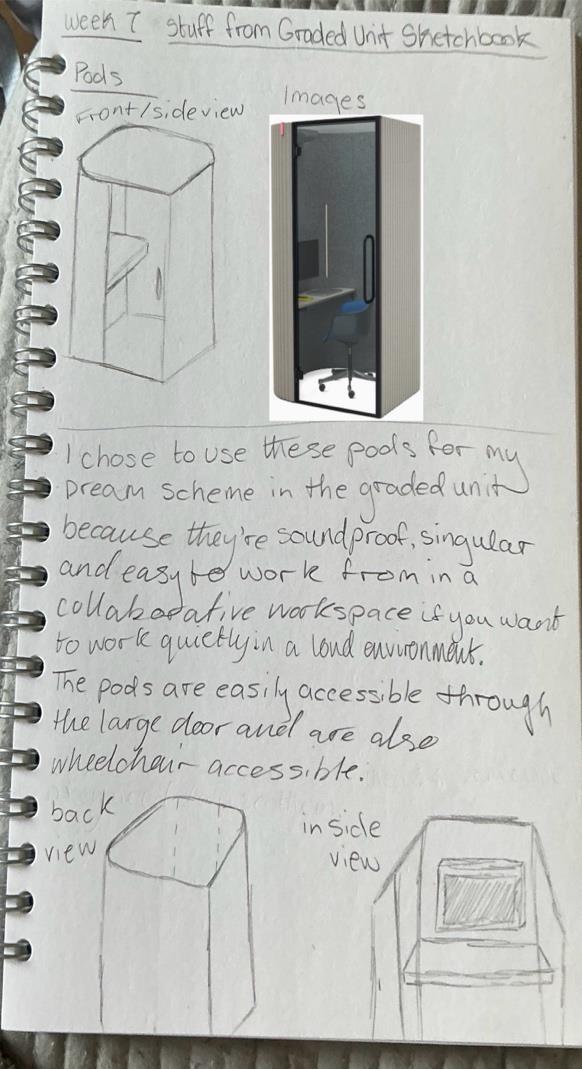 Week 7 Stuff from Graded Unit Sketchbook
Pods
Front/side view
Images
I chose to use these pods for my
Dream Scheme in the graded unit
because they're soundproof, singular
and easy to work from in a
collaborative workspace if you want
to work quietly in a loud environment.
The pods are easily accessible through
the large door and are also
wheelchair accessible.
back
view
inside
view